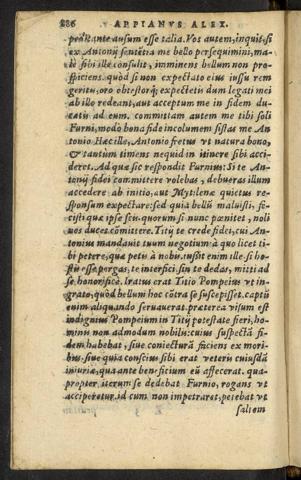 286 APPIANVS ALEX.
prædkante ausum esse talia. Vos autem, inquit, si
ex Antonij sentētra me bello persequimini, ma-
lè sibi ille consulit, imminens bellum non pro-
spiciens. quòd si non expectato eius iussu rem
geritis, oro obtestorq́; expectetis dum legati mei
ab illo redeant, aut acceptum me in fidem du-
catis ad eum. committam autem me tibi soli
Furni, modò bona fide incolumem sistas me An
tonio Hæc ille, Antonio fretus vt natura bono,
& tantùm timens nequid in itinere sibi acci-
deret. Ad quæ sic respondit Furnius: Si te An-
tonij fidei committere volebas, debueras illum
accedere ab initio, aut Mytilenæ quietus re-
sponsum expectare: sed quia bellū maluisti, fe-
cisti quæ ipse scis. quorum si nunc pœnitet, noli
nos duces cōmittere. Titij te crede fidei, cui An-
tonius mandauit tuum negotium à quo licet ti-
bi petere, quæ petis à nobis. iussit enim ille si ho-
stis esse pergas, te interfici. sin te dedas, mitti ad
se honorificè. Iratus erat Titio Pompeius vt in-
grato, quòd bellum hoc cōtra se suscepisset. captū
enim aliquando seruauerat. præterea visum est
indignius Pompeium in Titij potestate fieri, ho-
minis non admodum nobilis: cuius suspectā fi-
dem habebat, siue coniecturā faciens ex mori-
bus, siue quia conscius sibi erat veteris cuiusdā
iniuriæ, qua ante beneficium eū affecerat. qua-
propter iterum se dedebat Furnio, rogans vt
acciperetur. id cum non impetraret, petebat vt
saltem